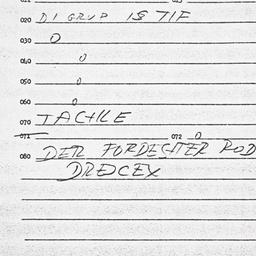 020 DI GRUP IS TIF
030 O
040 O
050 O
060 O
070 TACHLE
071 072 O
080 DER FORDECHTER ROD
DREJCEX